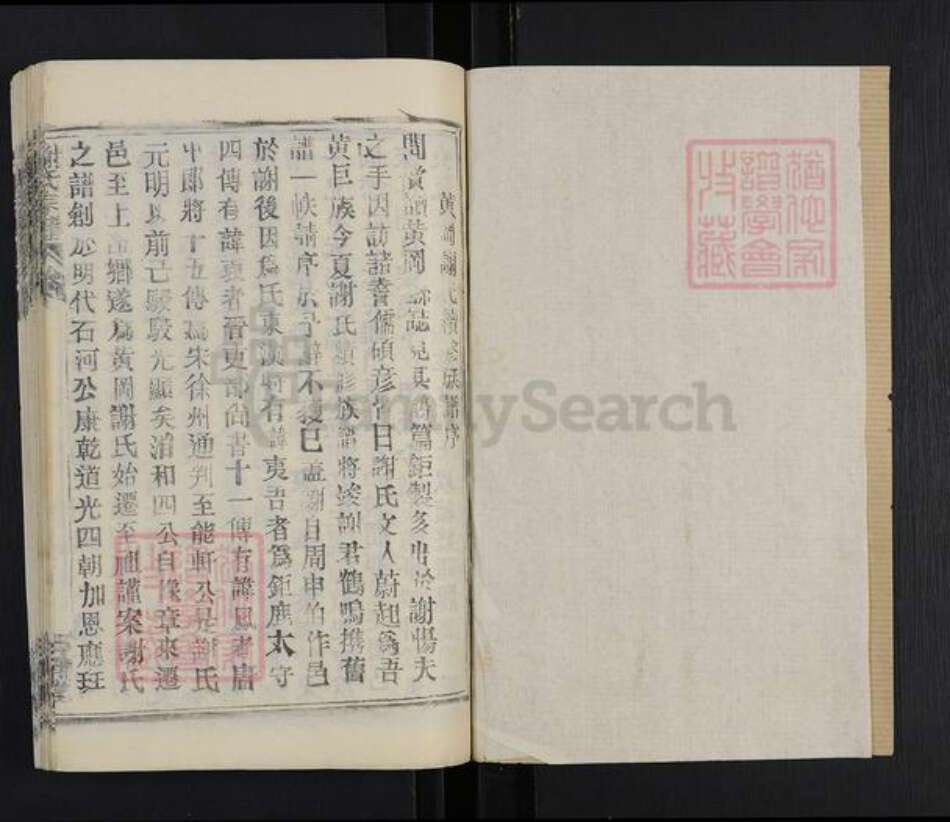 黃岡謝氏續修族譜序
間嘗讀黃岡縣誌見其鴻篇鉅製多出於謝惕夫
之手因訪諸耆儒碩彥皆曰謝氏文人蔚起為吾
黃巨族今夏謝氏續修族譜將竣謝君鶴鳴携舊
譜一帙請序於予辭不獲已蓋謝自周申伯作邑
於謝後因為氏東漢時有諱夷吾者為鉅鹿太守
四傳有諱裒者晉吏部尚書十一傳有諱鳳者唐
中郎將十五傳為宋徐州通判至能軒公是謝氏
元明以前已駸駸光顯矣洎和四公自豫章來遷
邑至上鄉遂為黃岡謝氏始遷至祖謹案謝氏
之譜創於明代石河公康乾道光四朝加恩應班
謝氏宗譜
譜學會
收藏
FamilySearch